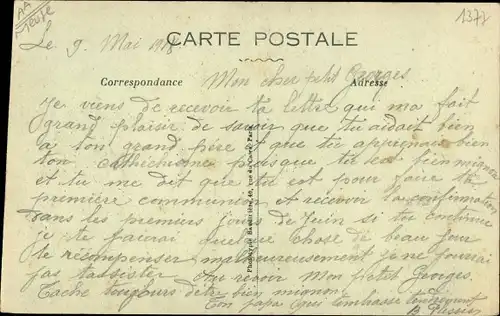 1377
CARTE POSTALE
Le 9 Mai
Correspondance
Adresse
Mon cher petit Georges
Je viens de recevoir ta lettre qui ma fait
grand plaisir de savoir que tu aidait bien
a ton grand père et que tu apprenais bien
ton cathéchisme puisque tu est bien mignon
et tu me dit que tu est pour faire ta
première communion et recevoir la confirmation
dans les premiers jours de Juin si tu continue
je te fairai quelque chose de beau pour
te recompenser malheureusement je ne pourrai
pas tassister Au revoir Mon petit Georges
Tache toujours detre bien mignon
Ton papa qui tembrasse tendrement